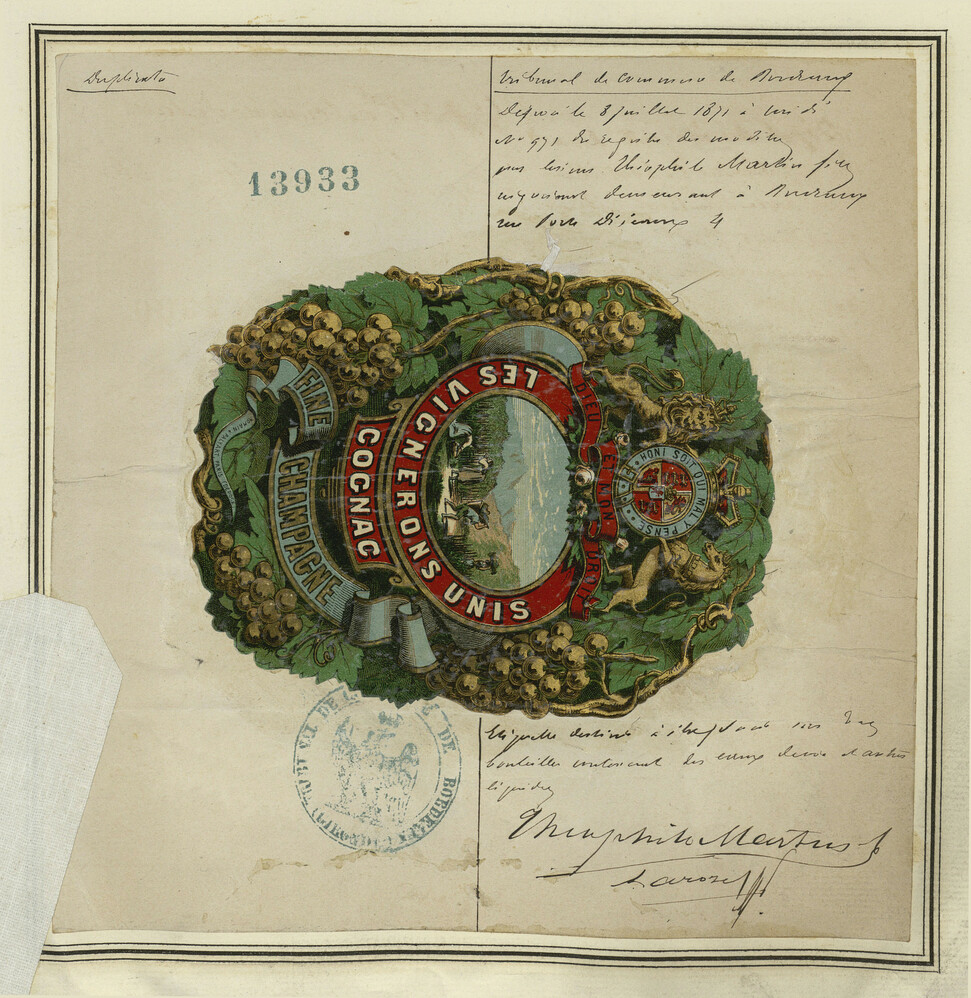 Duplicata
13933
Tribunal de Commerce de Bordeaux
Déposé le 8 Juillet 1871 à midi
No 971 du registre des modèles
par le sieur Théophile Martin fils
négociant demeurant à Bordeaux
rue Porte Dijeaux 4
HONI SOIT QUI MAL Y PENSE
DIEU ET MON DROIT
LES VIGNERONS UNIS
COGNAC
FINE CHAMPAGNE
Etiquette destinée à être apposée sur des
bouteilles contenant des eaux de vie et autres
liquides
DE BORDEAUX
Théophile Martin fs